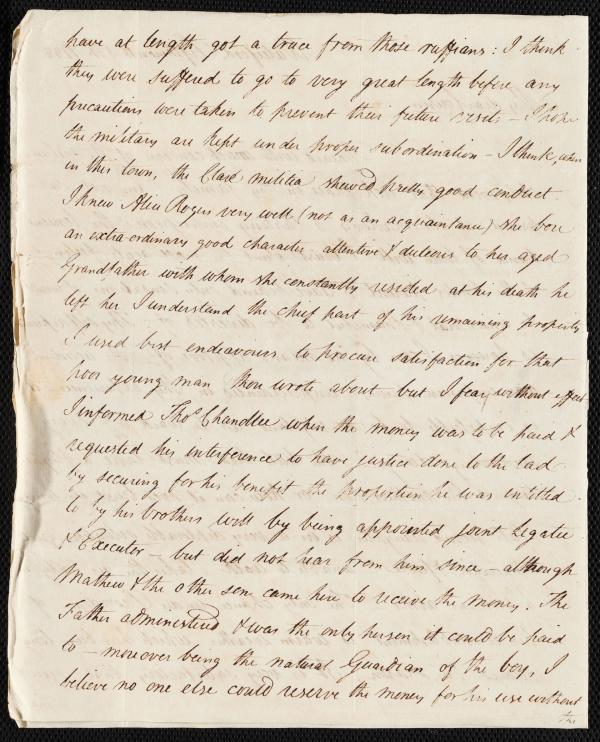 have at length got a truce from those ruffians: I think
they were suffered to go to very great length before any
precautions were taken to prevent their future visits – I hope
the military are kept under proper subordination – I think, when
in this town, the Clare militia shewed pretty good conduct
I knew Alice Rogers very well (not as an acquaintance) she bore
an extra-ordinary good character attentive & duteous to her aged
Grandfather with whom she constantly resided at his death he
left her I understand the chief part of his remaining property
I used best endeavours to procure satisfaction for that
poor young man thou wrote about but I fear without effect
I informed Thos. Chandlee when the money was to be paid &
requested his interference to have justice done to the lad
by securing for his benefit the proportion he was entitled
to by his brothers will by being appointed joint Legatee
& Executor – but did not hear from him since – although
Mathew & the other son came here to receive the money. The
Father administered & was the only person it could be paid
to – moreover being the natural Guardian of the boy, I
believe no one else could reserve the money for his use without
the